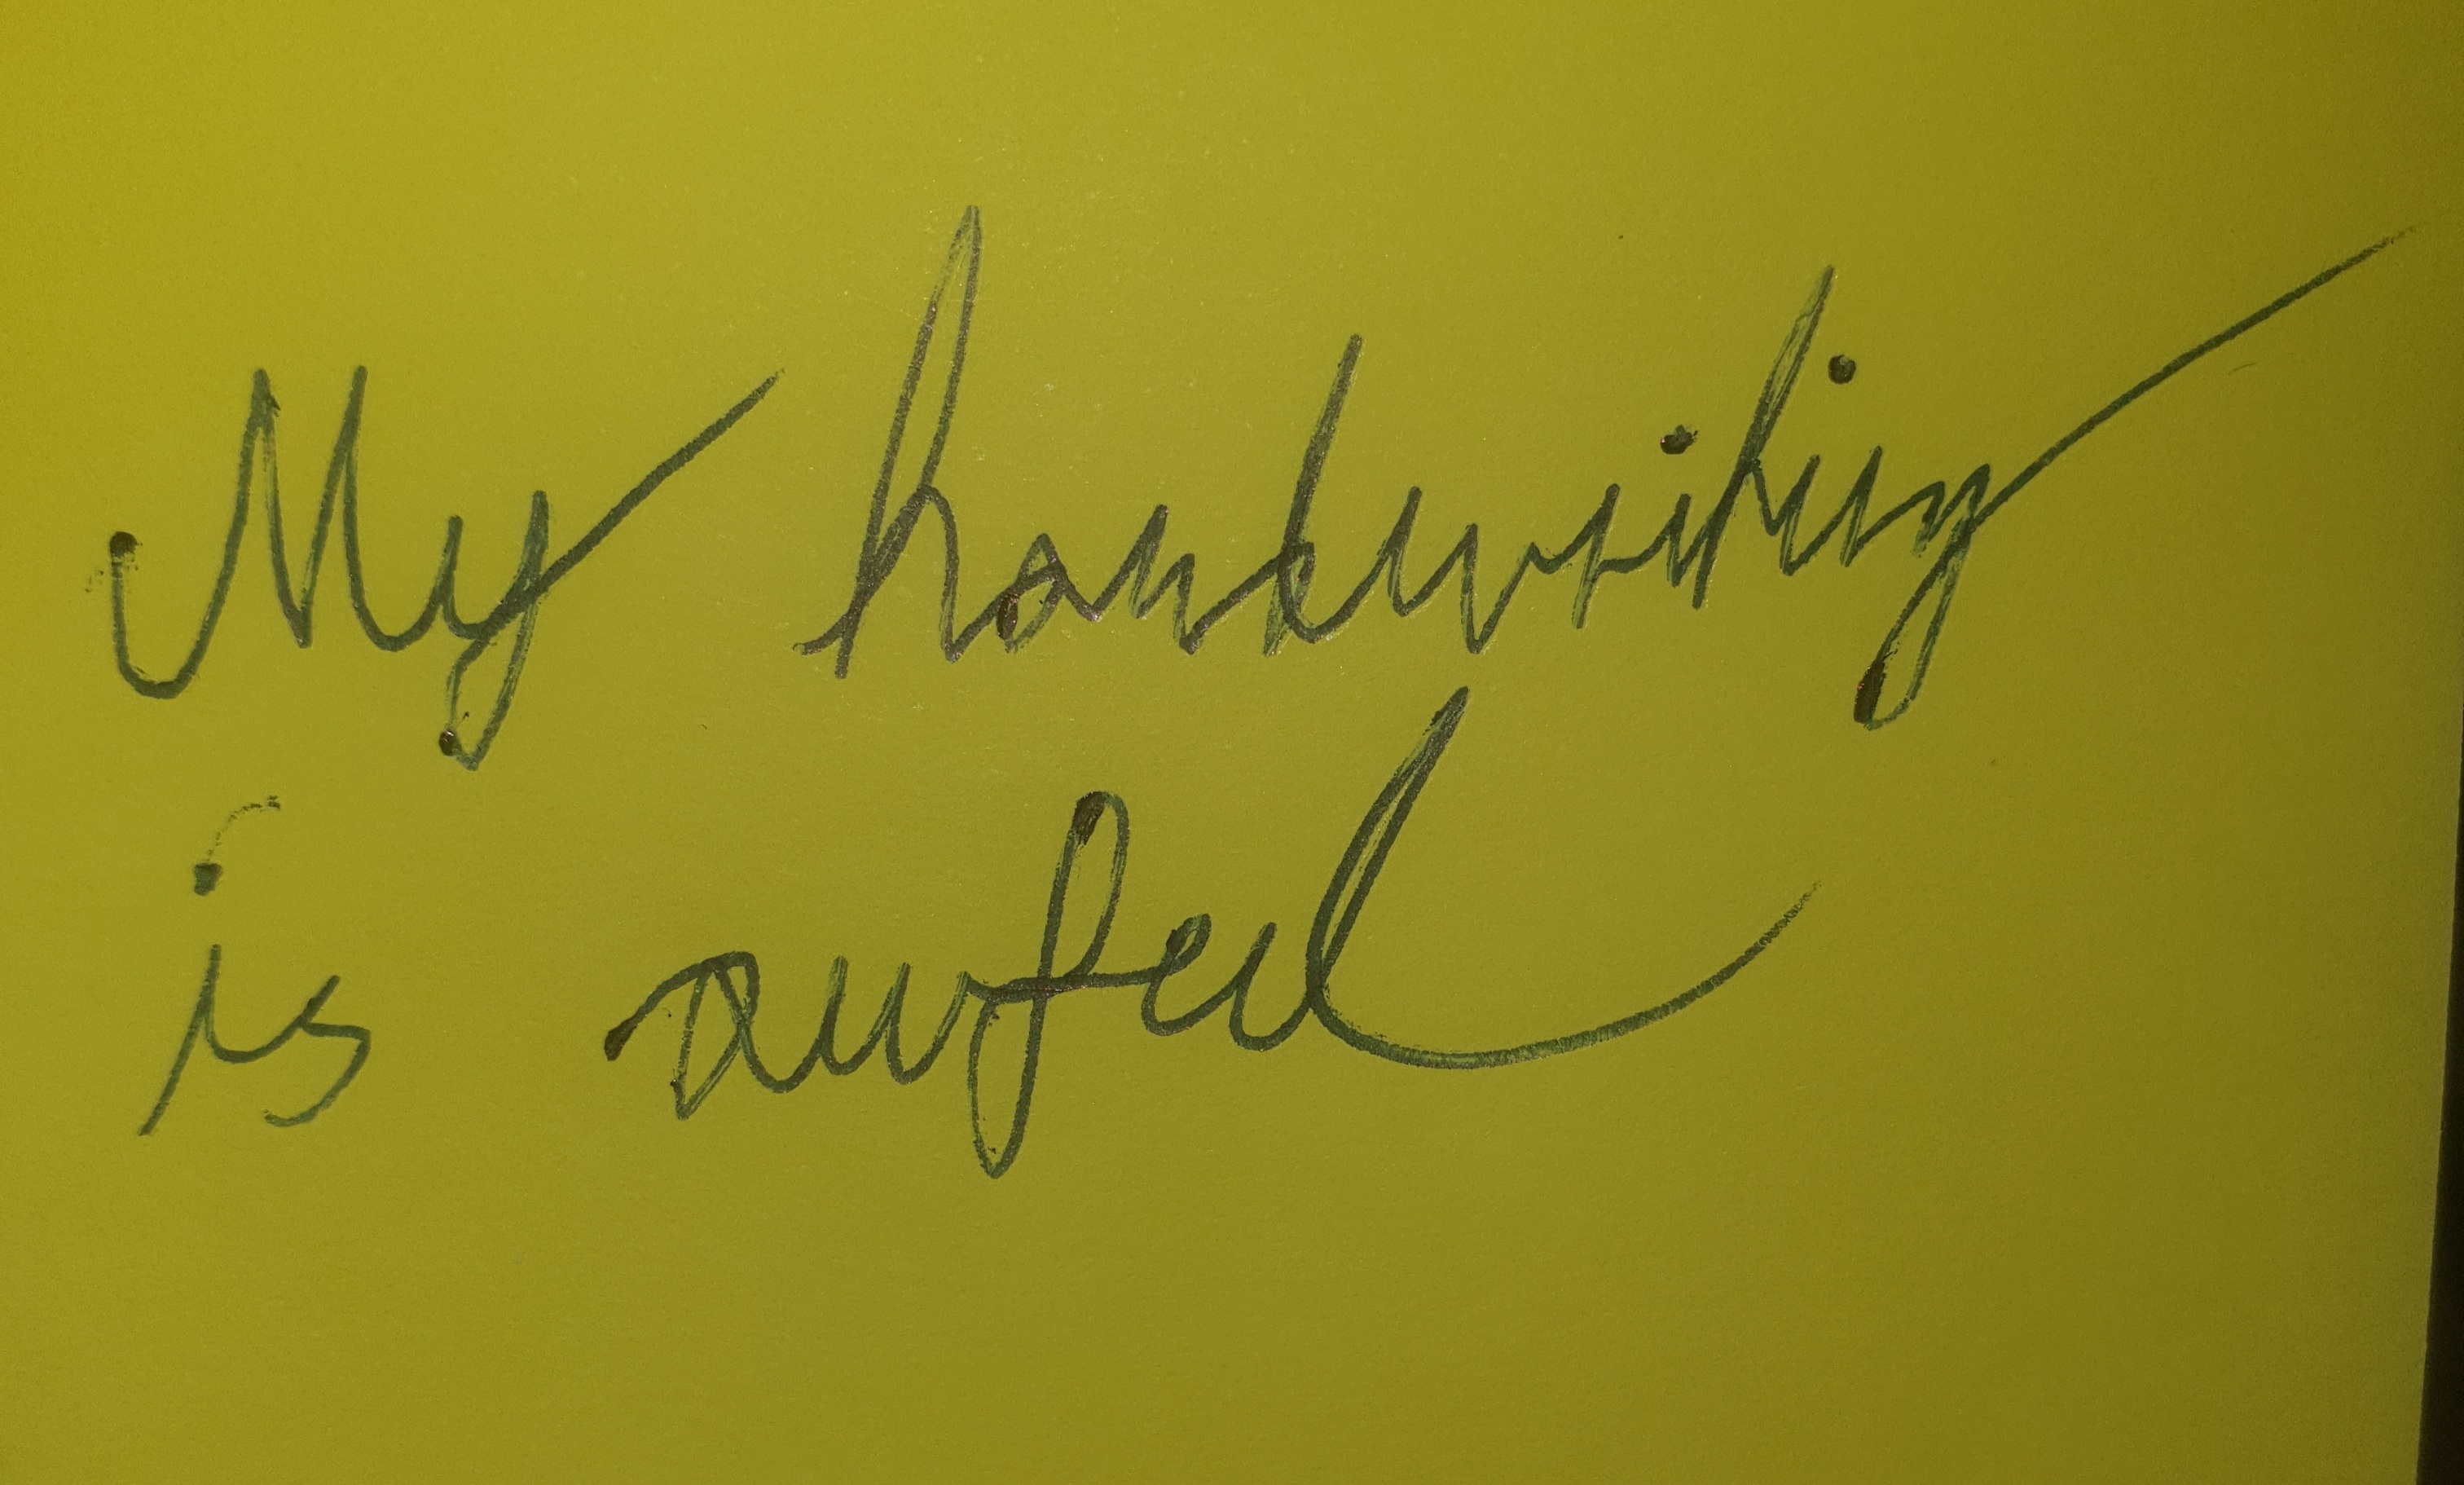 My handwriting
is awful